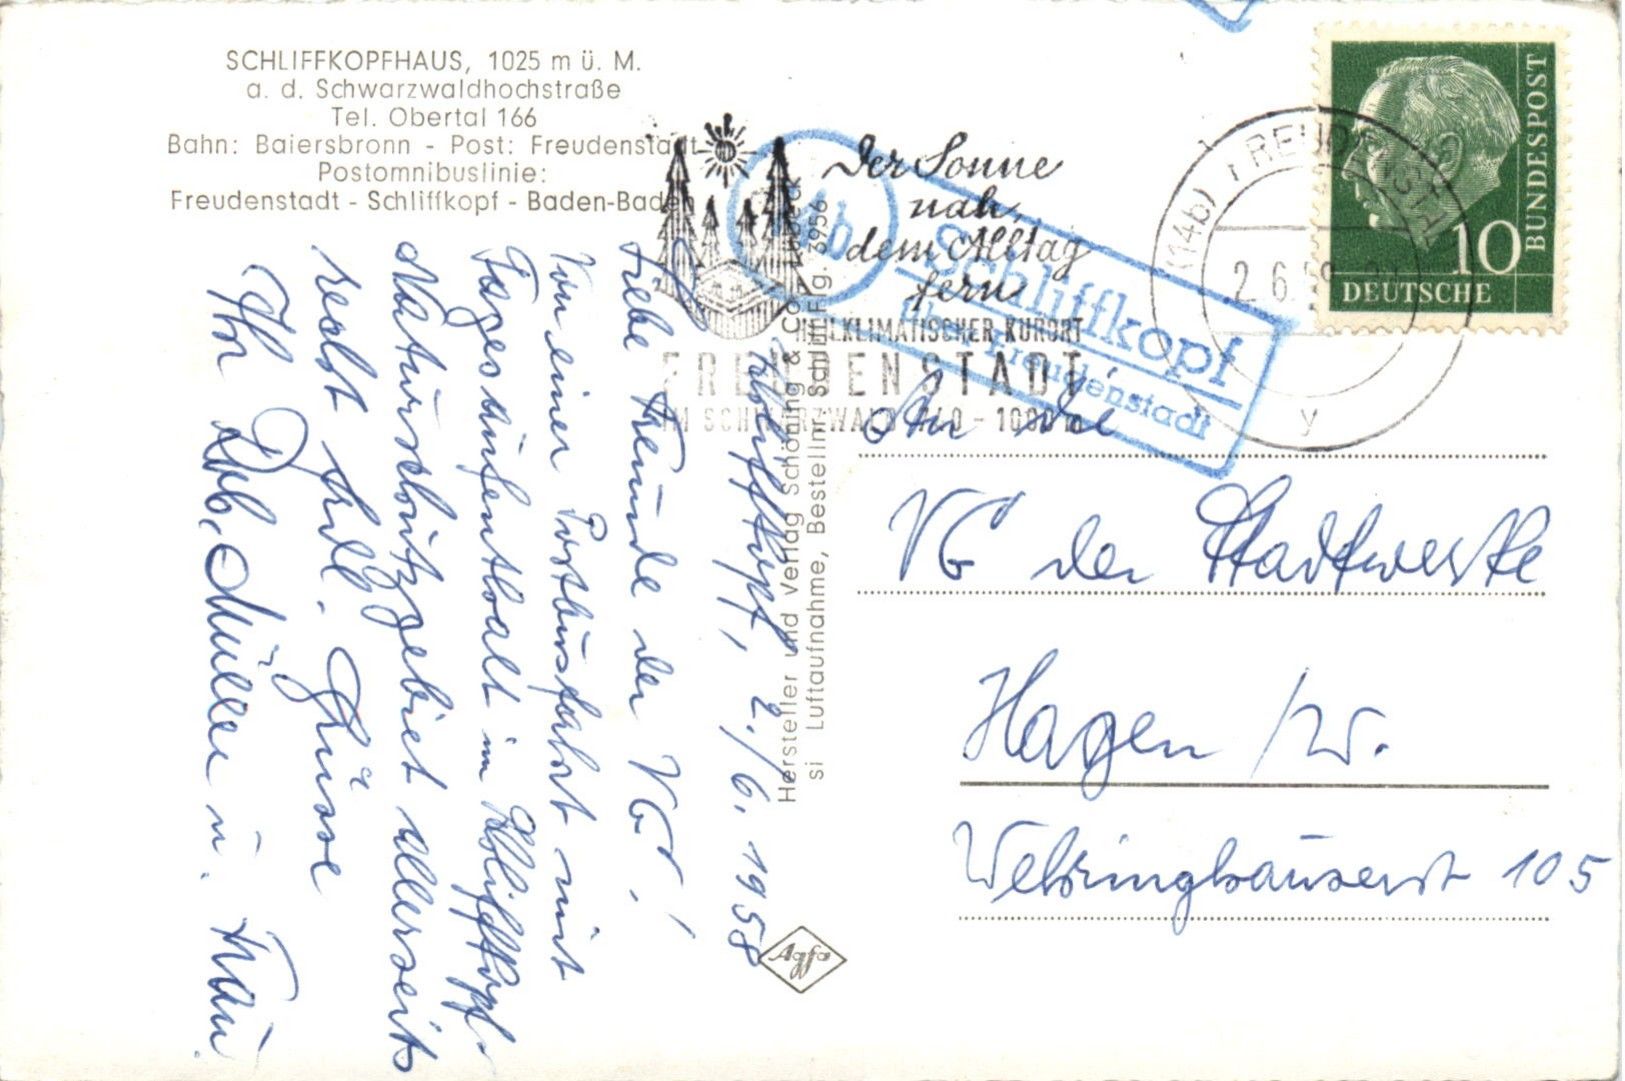 SCHLIFFKOPFHAUS, 1025 m ü. M.
a. d. Schwarzwaldhochstraße
Tel. Obertal 166
Bahn: Baiersbronn - Post: Freudenstadt
Postomnibuslinie:
Freudenstadt - Schliffkopf - Baden-Baden
Schliffkopf, 2./6. 1958
Liebe Freunde der VG!
Von einer Postbusfahrt mit
Tagesaufenthalt im Schliffkopf-
Naturschutzgebiet allerseits
recht frdl. Grüsse
Ihr Rob. Müller u. Frau.
Hersteller und Verlag Schöning & Co.
si Luftaufnahme, Bestellnr. Schliff Frg. 3956
Agfa
Der Sonne
nah,
dem Alltag
fern
HEILKLIMATISCHER KURORT
FREUDENSTADT
IM SCHWARZWALD 740 - 1000 m
14b
Schliffkopf
über Freudenstadt
(14b) FREUDENSTADT
2.6.58
y
DEUTSCHE
BUNDESPOST
10
An die
VG der Stadtwerke
Hagen /W.
Wehringhauserst 105